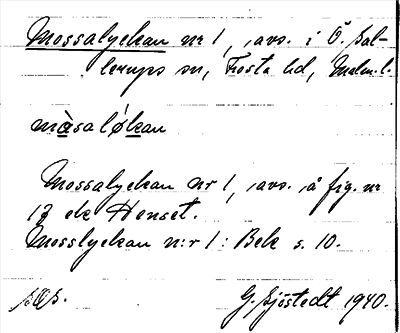 Mossalyckan nr 1, avs. i Ö. Sal-
lerups sn, Frosta hd, Malm. l.
màsalø̀kan
Mossalyckan nr 1, avs. å fig. nr
13 ek Henset.
Mosslyckan n:r 1: Besk s. 10.
G. Sjöstedt 1940.